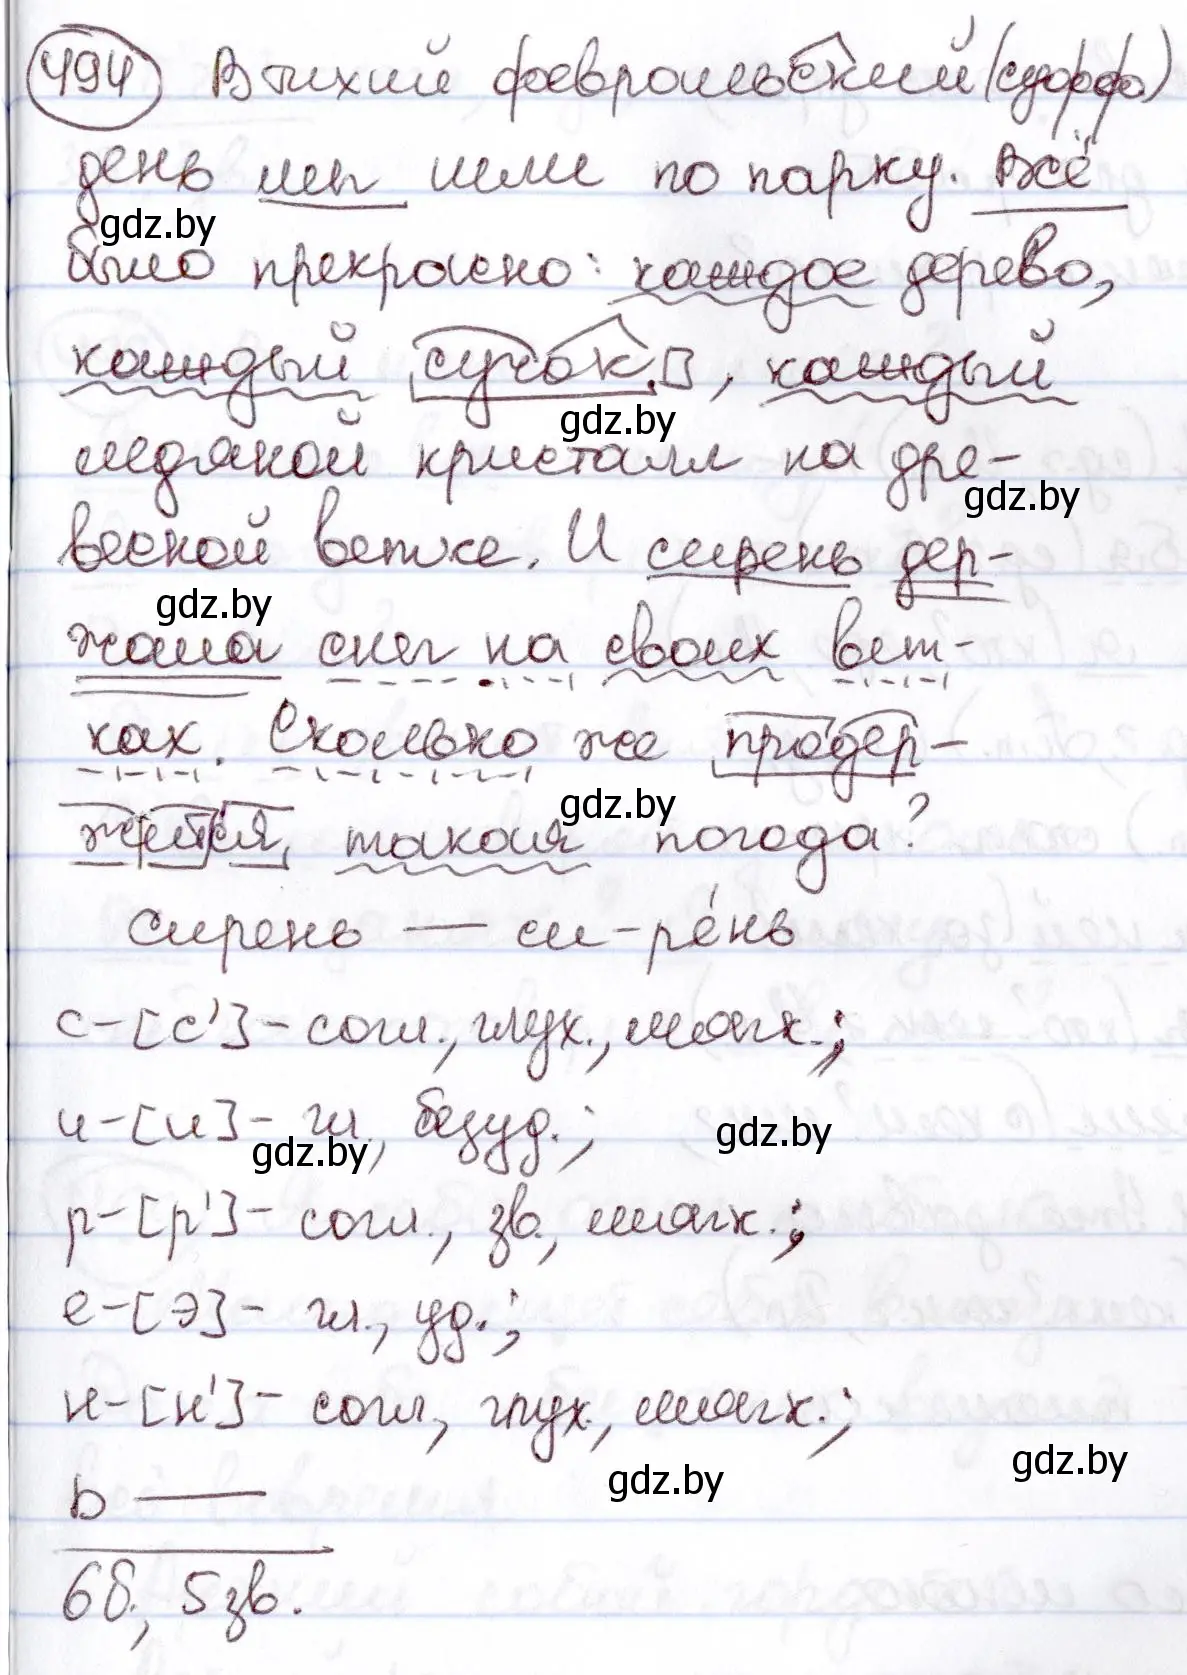 494 В тихий февральский (суффа)
день мы шли по парку. Всё
gdz.by
было прекрасно: каждое дерево,
каждый сучок, каждый
gdz.by
людякой кристалл на дре-
gdz.by
весной ветке. И сирень дер-
gdz.by
жала снег на своих вет-
ках. Сколько же продер-
gdz.by
жится такая погода?
сирень — си-ре́нь
с-[с']-согл., глух., мягк.;
и-[и]- гл., безуд.;
gdz.by gdz.by
р-[р']-согл., зв., мягк.;
е-[э]- гл., уд.;
н-[н']- согл., глух., мягк.;
gdz.by gdz.by
ь —
6б., 5зв.